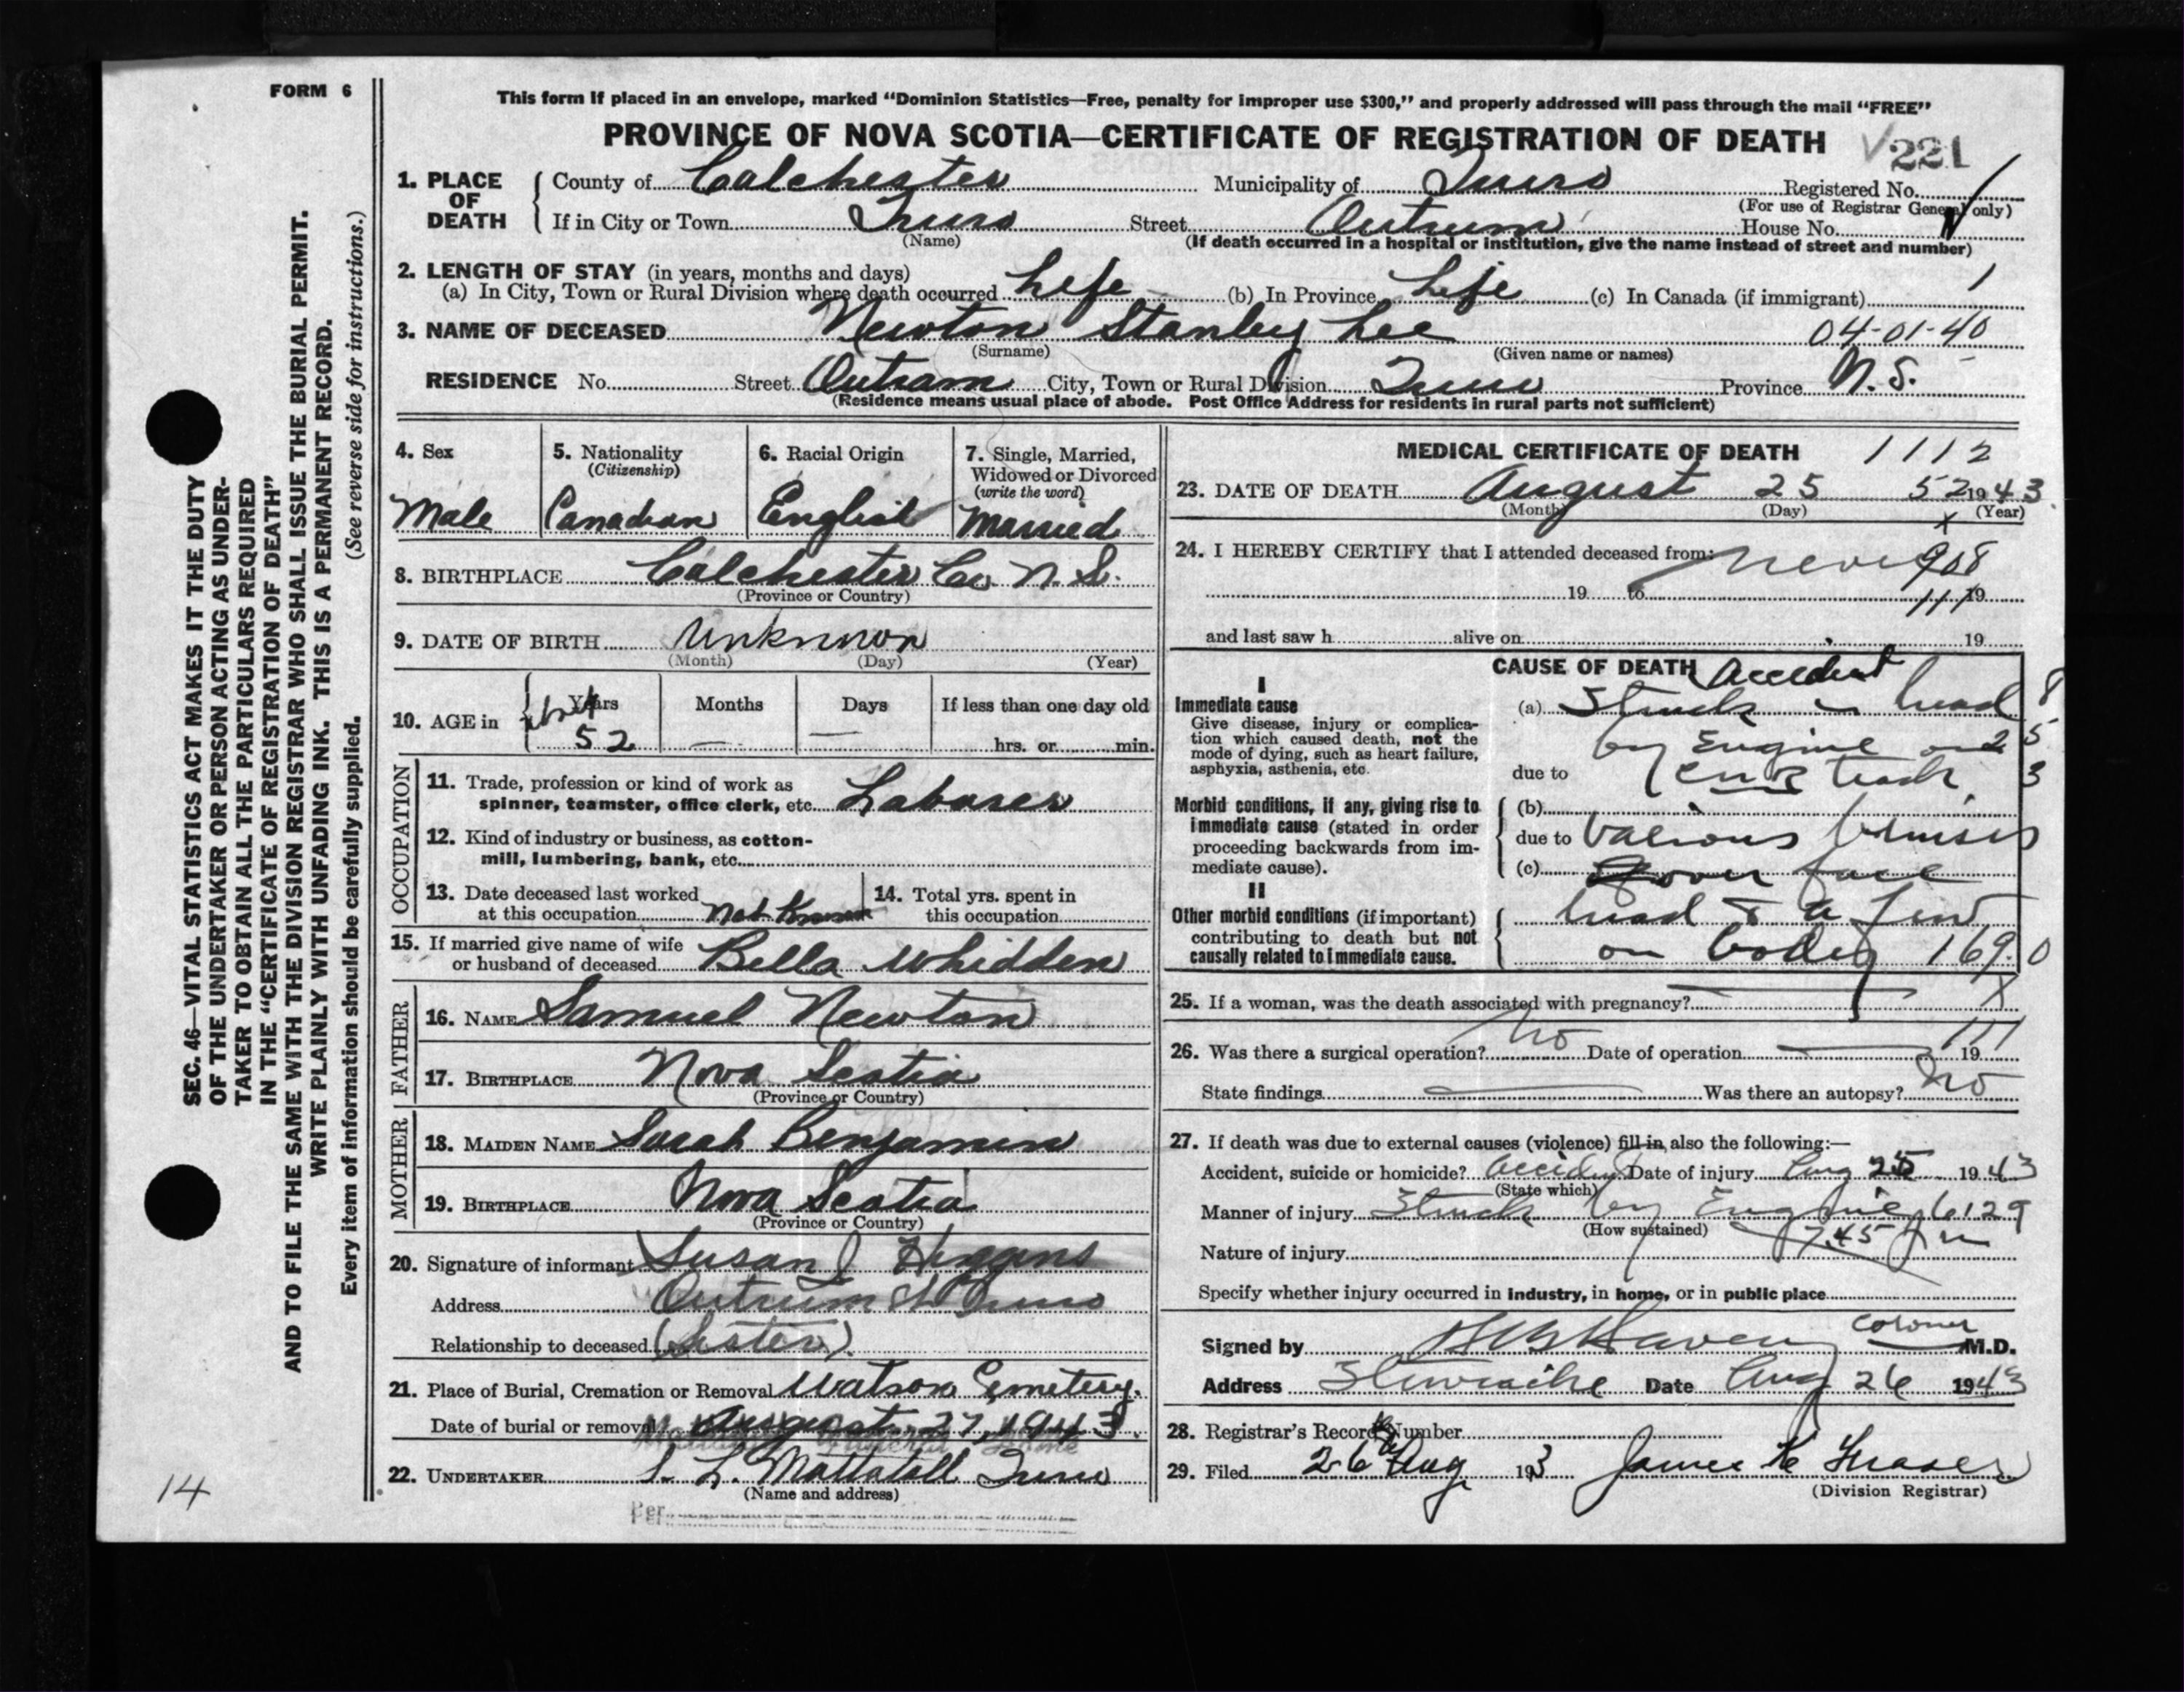 FORM 6
This form if placed in an envelope, marked "Dominion Statistics—Free, penalty for improper use $300," and properly addressed will pass through the mail "FREE"
PROVINCE OF NOVA SCOTIA—CERTIFICATE OF REGISTRATION OF DEATH
221
1. PLACE OF DEATH
County of Colchester Municipality of Truro Registered No.
(For use of Registrar General only)
If in City or Town Truro Street Outrum House No.
(Name) (If death occurred in a hospital or institution, give the name instead of street and number)
2. LENGTH OF STAY (in years, months and days)
(a) In City, Town or Rural Division where death occurred Life (b) In Province Life (c) In Canada (if immigrant)
3. NAME OF DECEASED Newton Stanley Lee 04-01-40
(Surname) (Given name or names)
RESIDENCE No. Street Outram City, Town or Rural Division Truro Province N.S.
(Residence means usual place of abode. Post Office Address for residents in rural parts not sufficient)
4. Sex
Male
5. Nationality
(Citizenship)
Canadian
6. Racial Origin
English
7. Single, Married, Widowed or Divorced
(write the word)
Married
8. BIRTHPLACE Colchester Co. N.S.
(Province or Country)
9. DATE OF BIRTH Unknown
(Month) (Day) (Year)
10. AGE in Years Months Days If less than one day old
abt 52 — — hrs. or min.
OCCUPATION
11. Trade, profession or kind of work as
spinner, teamster, office clerk, etc. Laborer
12. Kind of industry or business, as cotton-
mill, lumbering, bank, etc.
13. Date deceased last worked
at this occupation Not Known
14. Total yrs. spent in
this occupation
15. If married give name of wife
or husband of deceased Bella Whidden
FATHER
16. NAME Samuel Newton
17. BIRTHPLACE Nova Scotia
(Province or Country)
MOTHER
18. MAIDEN NAME Sarah Benjamin
19. BIRTHPLACE Nova Scotia
(Province or Country)
20. Signature of informant Susan J Higgins
Address Outrum St Truro
Relationship to deceased (Sister)
21. Place of Burial, Cremation or Removal Watson Cemetery.
Date of burial or removal August 27, 1943.
22. UNDERTAKER L. Mattatall Truro
(Name and address)
Per
MEDICAL CERTIFICATE OF DEATH 1112
23. DATE OF DEATH August 25 52 1943
(Month) (Day) (Year)
24. I HEREBY CERTIFY that I attended deceased from: never 908
19 to 111 19
and last saw h alive on 19
CAUSE OF DEATH Accident
I
Immediate cause
Give disease, injury or complica-
tion which caused death, not the
mode of dying, such as heart failure,
asphyxia, asthenia, etc.
(a) Struck in head 8
by Engine on 2 5
due to CNR track 3
Morbid conditions, if any, giving rise to
immediate cause (stated in order
proceeding backwards from im-
mediate cause).
(b)
due to Various bruises
(c) over face
II
Other morbid conditions (if important)
contributing to death but not
causally related to immediate cause.
head & a few
on body 169.0
25. If a woman, was the death associated with pregnancy? X
111
26. Was there a surgical operation? No Date of operation 19
State findings Was there an autopsy? No
27. If death was due to external causes (violence) fill in also the following:—
Accident, suicide or homicide? Accident Date of injury Aug 25 1943
(State which)
Manner of injury Struck by Engine 6129
(How sustained) 7.45 pm
Nature of injury
Specify whether injury occurred in industry, in home, or in public place
Signed by Coroner M.D.
Address Stewiacke Date Aug 26 1943
28. Registrar's Record Number
29. Filed 26 Aug 193 James K Fraser
(Division Registrar)
SEC. 46—VITAL STATISTICS ACT MAKES IT THE DUTY
OF THE UNDERTAKER OR PERSON ACTING AS UNDER-
TAKER TO OBTAIN ALL THE PARTICULARS REQUIRED
IN THE "CERTIFICATE OF REGISTRATION OF DEATH"
AND TO FILE THE SAME WITH THE DIVISION REGISTRAR WHO SHALL ISSUE THE BURIAL PERMIT.
WRITE PLAINLY WITH UNFADING INK. THIS IS A PERMANENT RECORD.
Every item of information should be carefully supplied. (See reverse side for instructions.)
14